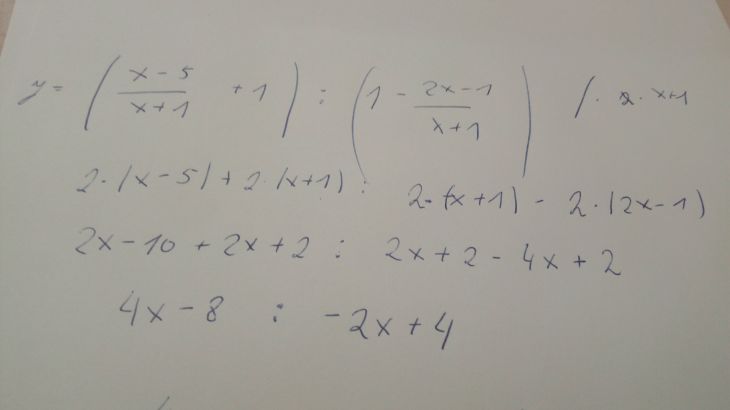 y = ( x-5 / x+1 + 1 ) : ( 1 - 2x-1 / x+1 ) / · 2 · x+1
2·(x-5)+2·(x+1) : 2·(x+1) - 2·(2x-1)
2x-10+2x+2 : 2x+2-4x+2
4x-8 : -2x+4